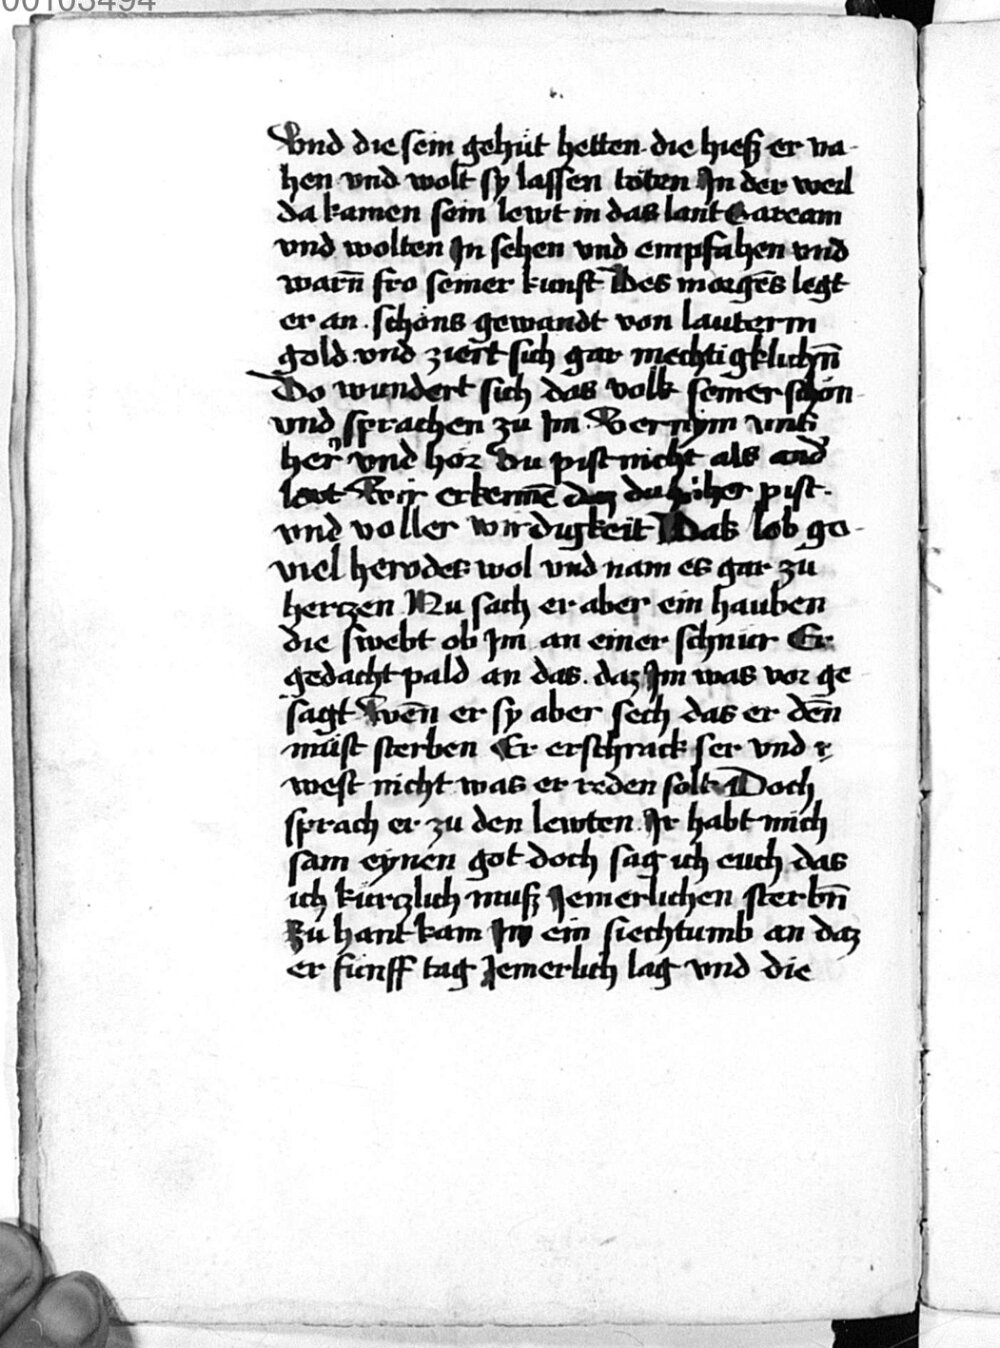 00103494
Vnd die sein gehüt hetten die hieß er va-
hen vnd wolt sy lassen töten In der weil
da kamen sein lewt in das lant Caream
vnd wolten In sehen vnd empfahen vnd
warn̄ fro seiner kunft Des morgēs legt
er an schöns gewandt von lauterm
gold vnd ziert sich gar mechtigklichn̄
Do wundert sich das volk seiner schön
vnd sprachen zu Im Vernym vns
her vnd hör Du pist nicht als and
lewt Wir erkennē daz du höher pist
vnd voller wirdigkeit Das lob ge-
viel herodes wol vnd nam es gar zu
hertzen Nu sach er aber ein hauben
die swebt ob Im an einer schnur Er
gedacht pald an das daz Im was vor ge
sagt Wēn er sy aber sech das er dēn
müst sterben Er erschrack ser vnd
west nicht was er reden solt Doch
sprach er zu den lewten Ir habt mich
sam eynen got doch sag ich euch das
ich kürtzlich muß Jemerlichen sterbn̄
Zu hant kam Im ein siechtumb an daz
er fünff tag Jemerlich lag vnd die